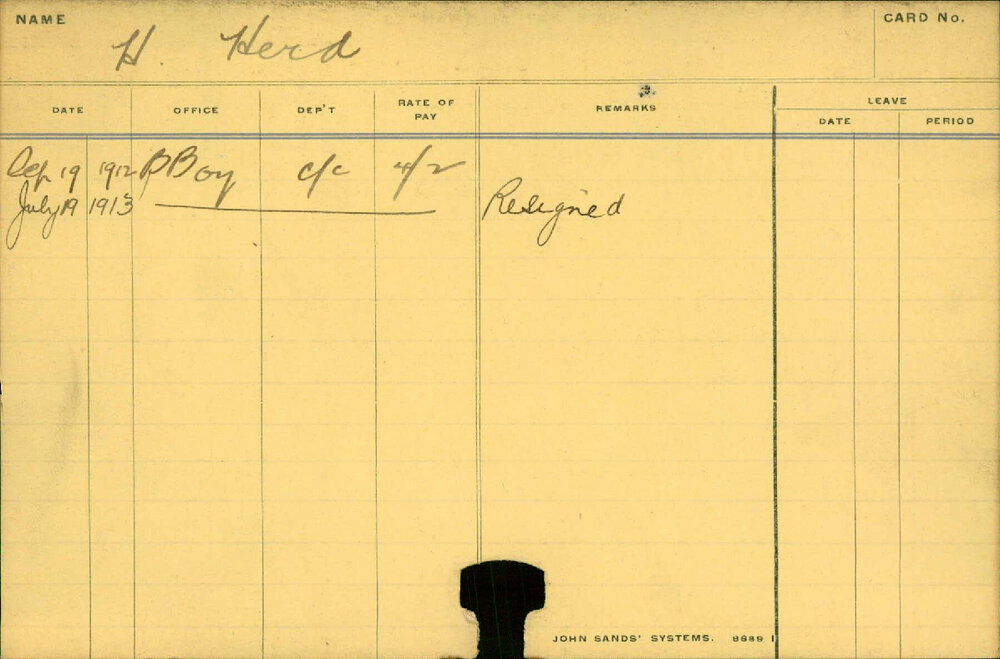 NAME H. Herd CARD No.
DATE OFFICE DEP'T RATE OF PAY REMARKS LEAVE
DATE PERIOD
Sep 19 1912 P Boy c/c 4/2
July 19 1913 Resigned
JOHN SANDS' SYSTEMS. 8689 1